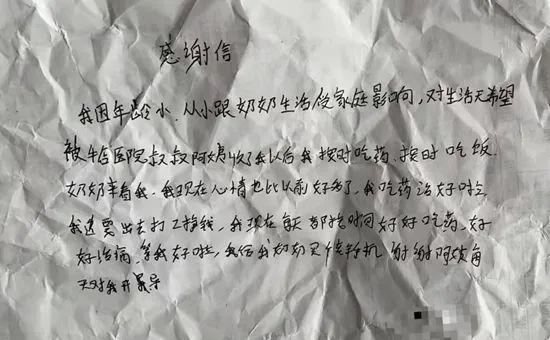 感谢信
我因年龄小,从小跟奶奶生活受家庭影响,对生活无希望
被 医院叔叔阿姨收了我以后我按时吃药、按时吃饭.
奶奶幸着我.我现在心情也比以前好多了,我吃药治好啦
我还要出去打工挣钱,我现在每天都按时间好好吃药、好
好治病.等我好啦,我给我奶奶买 机 谢谢阿姨
天对我开导